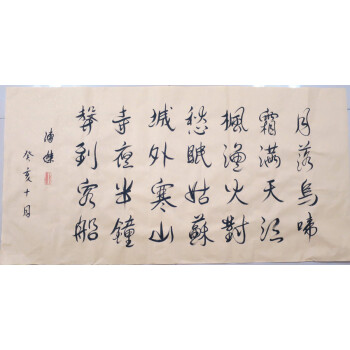 月落烏啼
霜滿天江
楓漁火對
愁眠姑蘇
城外寒山
寺夜半鐘
聲到客船
癸亥十月